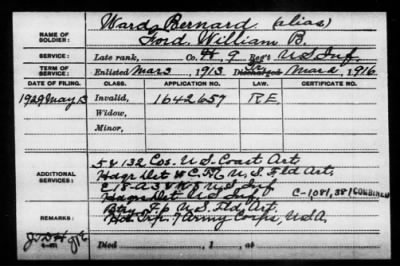 NAME OF SOLDIER: Ward, Bernard (alias)
Ford, William B.
SERVICE: Late rank, Co. H, 9 Reg't U.S. Inf.
TERM OF SERVICE: Enlisted Mar 3, 1913. Discharged Mar 2, 1916
DATE OF FILING. CLASS. APPLICATION NO. LAW. CERTIFICATE NO.
1929 May 13 Invalid, 1642657 R.E.
Widow,
Minor,
ADDITIONAL SERVICES: 5 & 132 Cos. U.S. Coast Art.
Hdqrs Det & C, U.S. Fld Art.
U.S. Inf
Hdqrs Det U.S. Inf C-1,081,381 COMBINED
Btry F, 6 U.S. Fld. Art.
REMARKS: Hd. Trp. 7 Army Corps, U.S.A.
Died , 1 , at